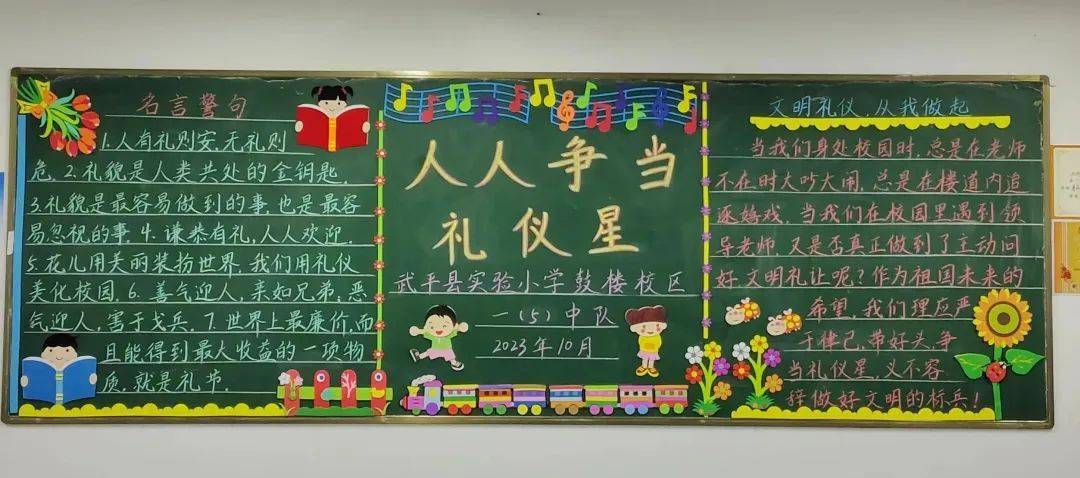 名言警句
1.人有礼则安,无礼则
危. 2.礼貌是人类共处的金钥匙.
3.礼貌是最容易做到的事,也是最容
易忽视的事. 4.谦恭有礼,人人欢迎.
5.花儿用美丽装扮世界,我们用礼仪
美化校园. 6.善气迎人,亲如兄弟;恶
气迎人,害于戈兵. 7.世界上最廉价,而
且能得到最大收益的一项物
质,就是礼节.
人人争当
礼仪星
武平县实验小学鼓楼校区
一(5)中队
2023年10月
文明礼仪,从我做起
当我们身处校园时,总是在老师
不在时大吵大闹,总是在楼道内追
逐嬉戏.当我们在校园里遇到领
导老师,又是否真正做到了主动问
好,文明礼让呢?作为祖国未来的
希望,我们理应严
于律己,带好头,争
当礼仪星,义不容
辞做好文明的标兵!